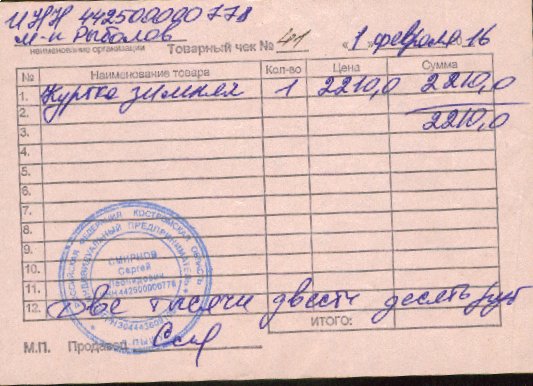 ИНН 442500000778
М-н Рыболов
наименование организации Товарный чек № 41 « 1 » февраля 2016
№ Наименование товара Кол-во Цена Сумма
1. Куртка зимняя 1 2210,0 2210,0
2. 2210,0
3.
4.
5.
6.
7.
8.
9.
10.
11.
12. Две тысячи двести десять руб
ИТОГО:
М.П. Продавец
РОССИЙСКАЯ ФЕДЕРАЦИЯ КОСТРОМСКАЯ ОБЛАСТЬ
ИНДИВИДУАЛЬНЫЙ ПРЕДПРИНИМАТЕЛЬ
СМИРНОВ
Сергей
Леонидович
ИНН442500000778